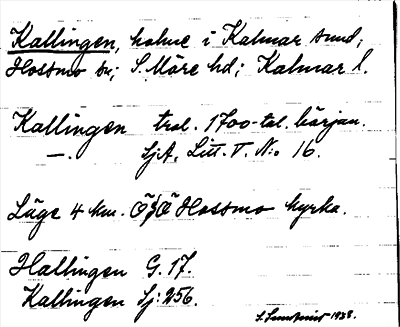 Kallingen, holme i Kalmar sund;
Hossmo sn; S. Möre hd; Kalmar l.
Kallingen trol. 1700-tal. början.
—. SjA, Litt. V. No 16.
Läge 4 km. ÖSÖ Hossmo kyrka.
Hallingen G. 17.
Kallingen Sj: 256.
1938.